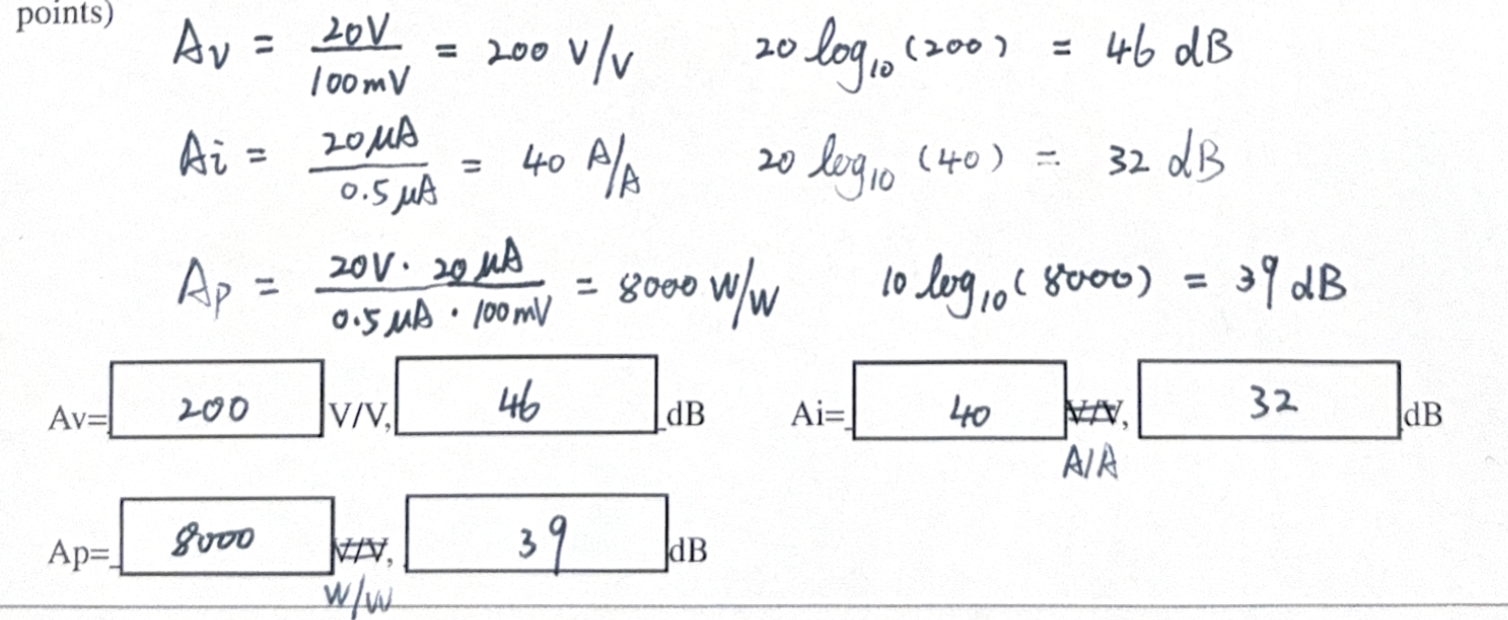 points)
Av = 20V/100mV = 200 V/V 20 log10 (200) = 46 dB
Ai = 20μA/0.5μA = 40 A/A 20 log10 (40) = 32 dB
Ap = 20V · 20μA/0.5μA · 100mV = 8000 W/W 10 log10 (8000) = 39 dB
Av= 200 V/V, 46 dB Ai= 40 V/V, 32 dB
A/A
Ap= 8000 V/V, 39 dB
W/W